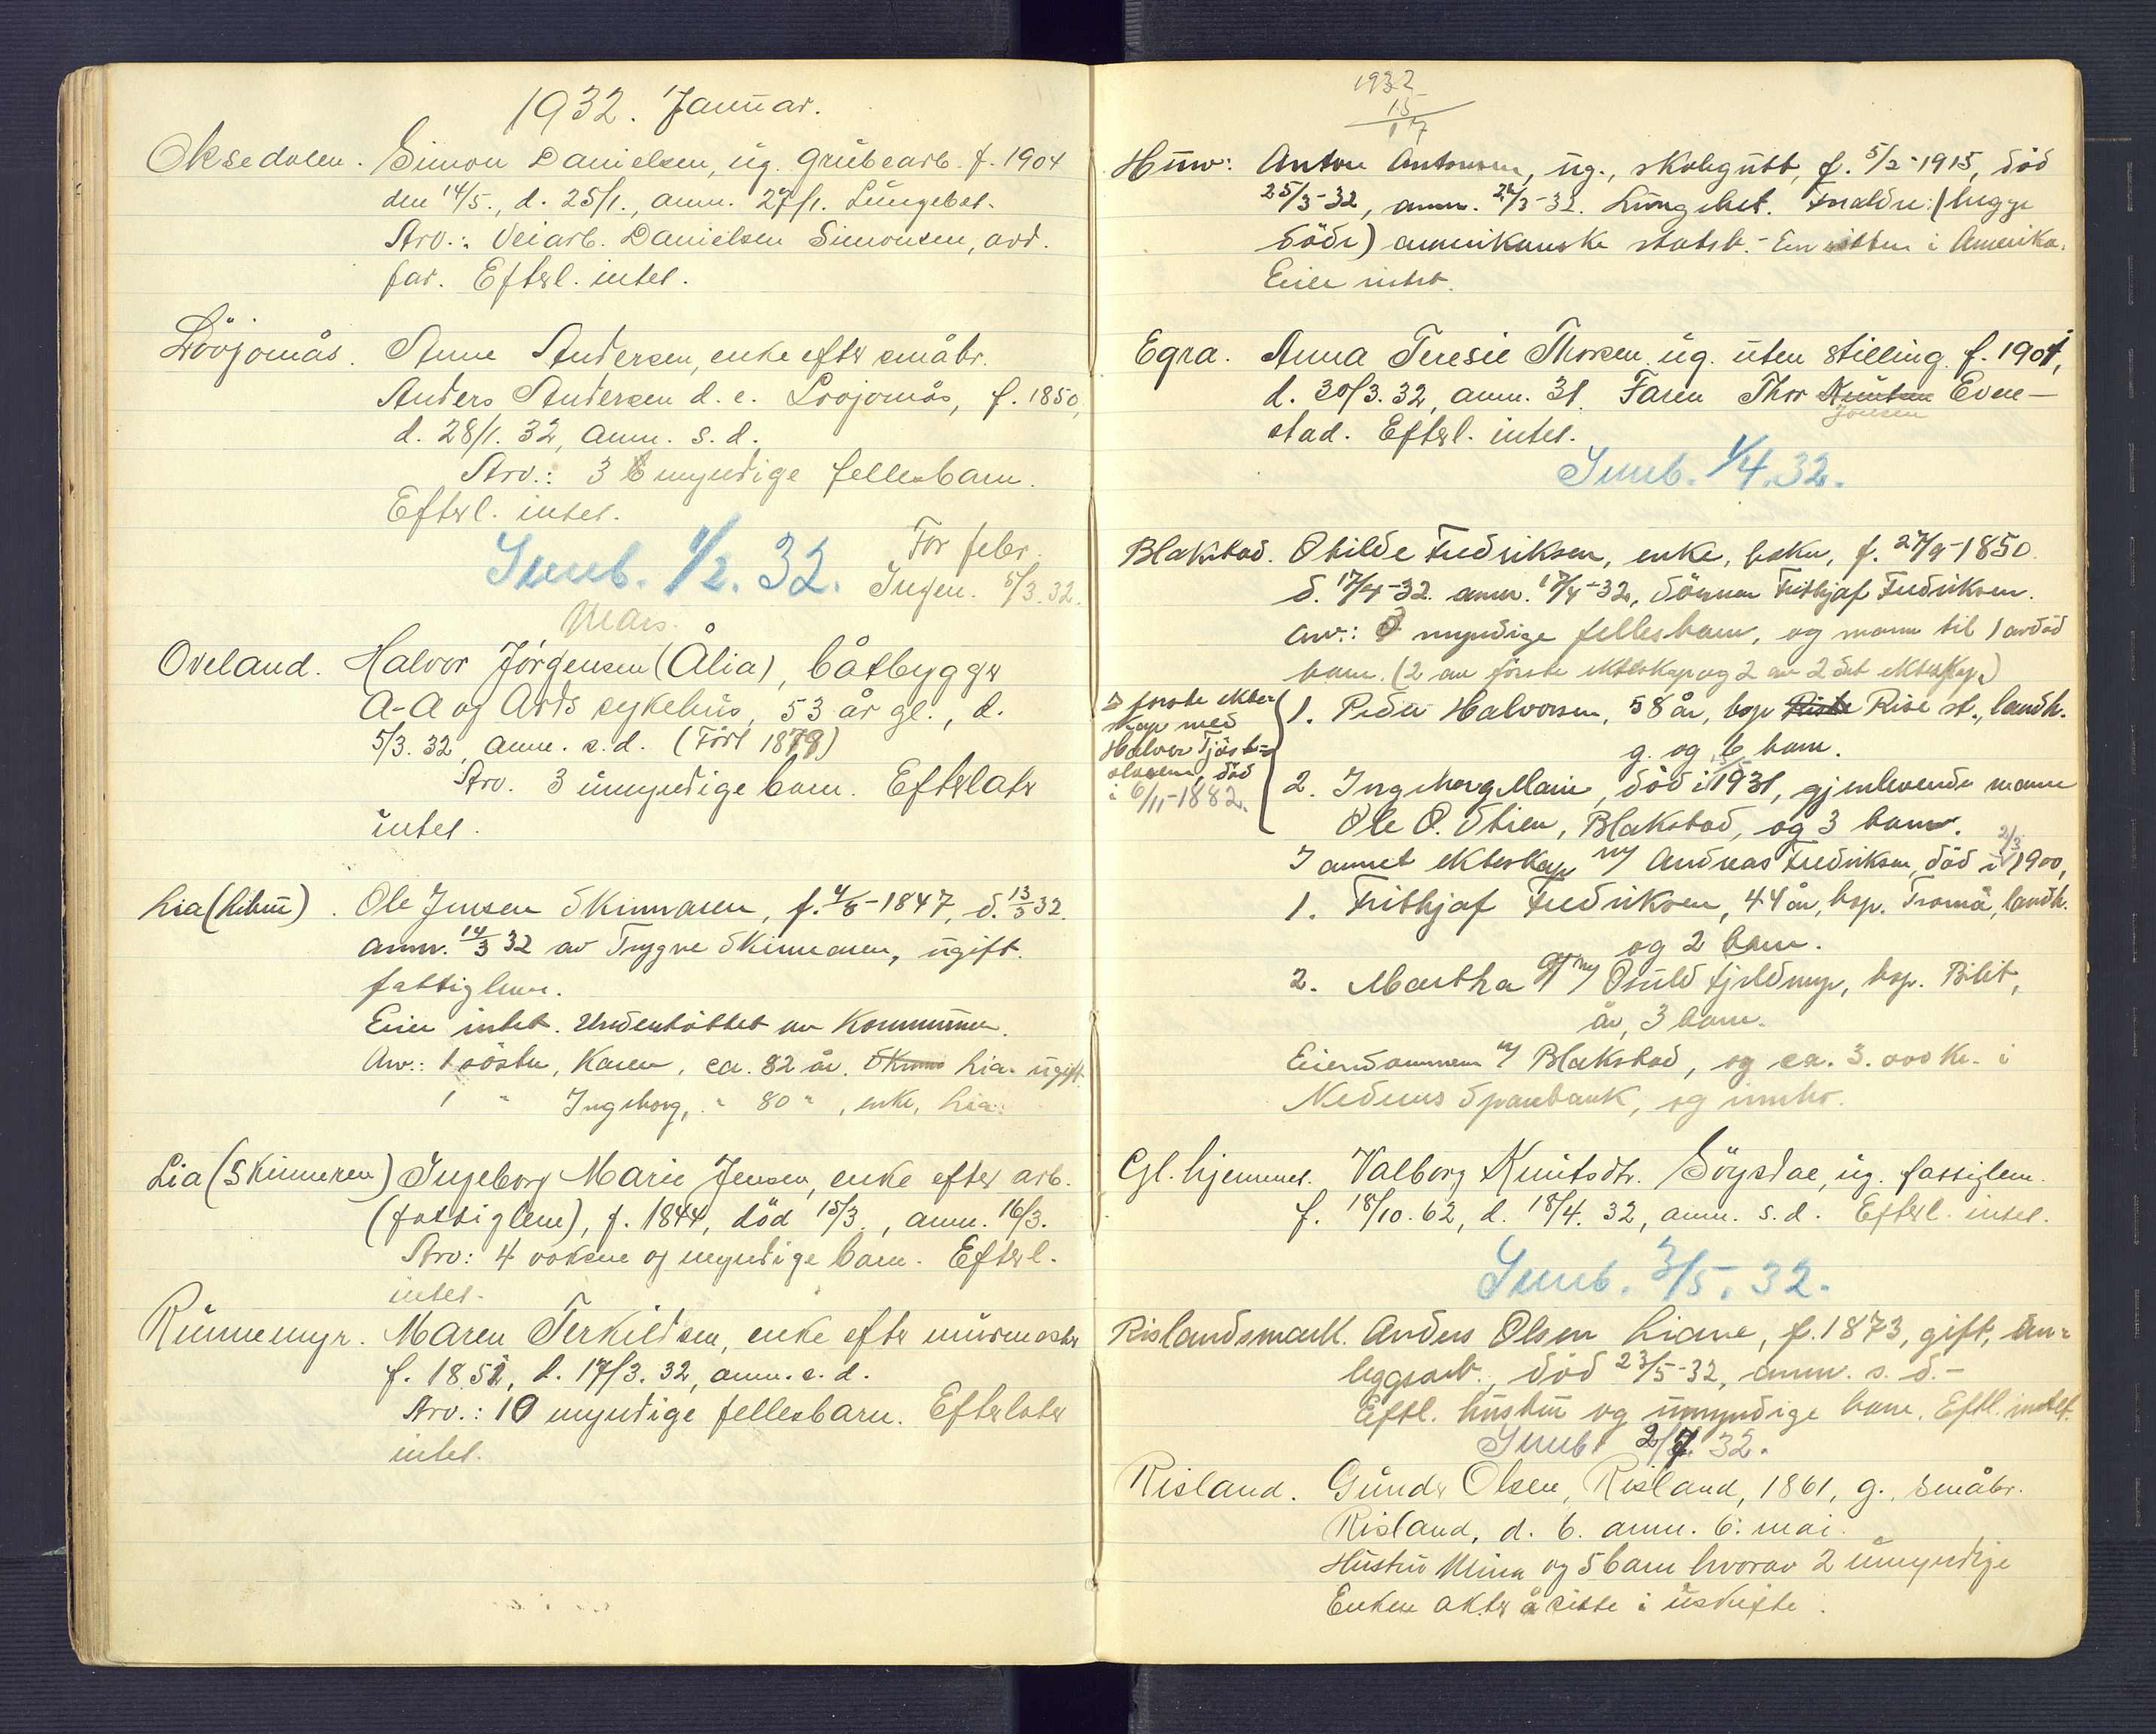 1932. Januar.
Oksedalen. Simon Danielsen, ug. grubearb. f. 1904
den 14/5., d. 25/1., anm. 27/1. Lungebet.
Arv.: Veiarb. Danielsen Simonsen, avd.
far. Efterl. intet.
Lövjomås. Anne Andersen, enke efter småbr.
Anders Andersen d. e. Lovjomås, f. 1850,
d. 28/1. 32, anm. s. d.
Arv.: 3 myndige fellesbarn.
Efterl. intet.
Innb. 1/2. 32. For febr.
Ingen. 5/3. 32.
Mars.
Oveland. Halvor Jørgensen (Ålia), båtbygger
A-A og Ards sykehus, 53 år gl., d.
5/3. 32, anm. s. d. (Født 1879)
Arv. 3 umyndige barn. Efterlater
intet.
Lia (Libru). Ole Jensen Skinnaren, f. 4/8-1847, d. 13/3 32.
anm. 14/3 32 av Trygve Skinnaren, ugift.
fattiglem.
Eier intet. Understöttet av Kommunen.
Arv.: 1 söster, Karen, ca. 82 år. Lia. ugift.
1 " Ingeborg, " 80 ", enke, Lia.
Lia (Skinneren) Ingeborg Marie Jensen, enke efter arb.
(fattiglem), f. 1844, död 15/3., anm. 16/3.
Arv: 4 voksne og myndige barn. Efterl.
intet.
Runnemyr. Maren Terkildsen, enke efter murmester
f. 1851, d. 17/3. 32, anm. s. d.
Arv.: 10 myndige fellesbarn. Efterlater
intet.
1932
15
17
Huw: Anton Antonsen, ug., skolegutt, f. 5/2-1915, död
25/3-32, anm. 26/3-32. Lungebet. Foreldre: (begge
döde) amerikanske statsb. - En söster i Amerika.
Eier intet.
Egra. Anna Teresie Thorsen ug. uten stilling. f. 1904,
d. 30/3. 32, anm. 31. Faren Thor Knutsen Even-
Jonsen
stad. Efterl. intet.
Innb. 1/4. 32.
Blakstad. Otilde Fredriksen, enke, f. 27/9-1850.
d. 17/4-32. anm. 17/4-32, sönnen Frithjof Fredriksen.
Arv.: myndige fellesbarn, og mann til 1 avdöd
barn. (2 av förste ekteskap og 2 av 2det ekteskap.)
I forste ekte-
skap med
Halvor Tjöst-
olvsen, död
i 6/11-1882.
1. Peder Halvorsen, 58 år, bop Riste Rise st., landh.
g. og 6 barn.
2. Ingeborg Marie, död i 1931, gjenlevende mann
Ole O. Stien, Blakstad, og 3 barn.
I annet ekteskap m/ Andreas Fredriksen, död i 2/3 1900,
1. Frithjof Fredriksen, 44 år, bop. Tromö, landh.
og 2 barn.
2. Martha g m/ Osuld Fjeldmyr, bop.
år, 3 barn.
Eiendommen Blakstad, og ca. 3.000 kr. i
Nedenes Sparebank, og innbo.
Gl. hjemmet. Valborg Knutsdtr. Søgstae, ug. fattiglem.
f. 18/10. 62, d. 18/4. 32, anm. s. d. Efterl. intet.
Innb. 3/5. 32.
Rislandsmark. Anders Olsen Liane, f. 1873, gift, an-
leggsarb., död 23/5-32, anm. s. d. -
Eftl. hustru og umyndige barn. Eftl. intet.
Innb. 2/7. 32.
Risland. Gunder Olsen, Risland, 1861, g., småbr.
Risland, d. 6. anm. 6. mai.
Hustru Mina og 5 barn hvorav 2 umyndige
Enken akter å sitte i uskifte.